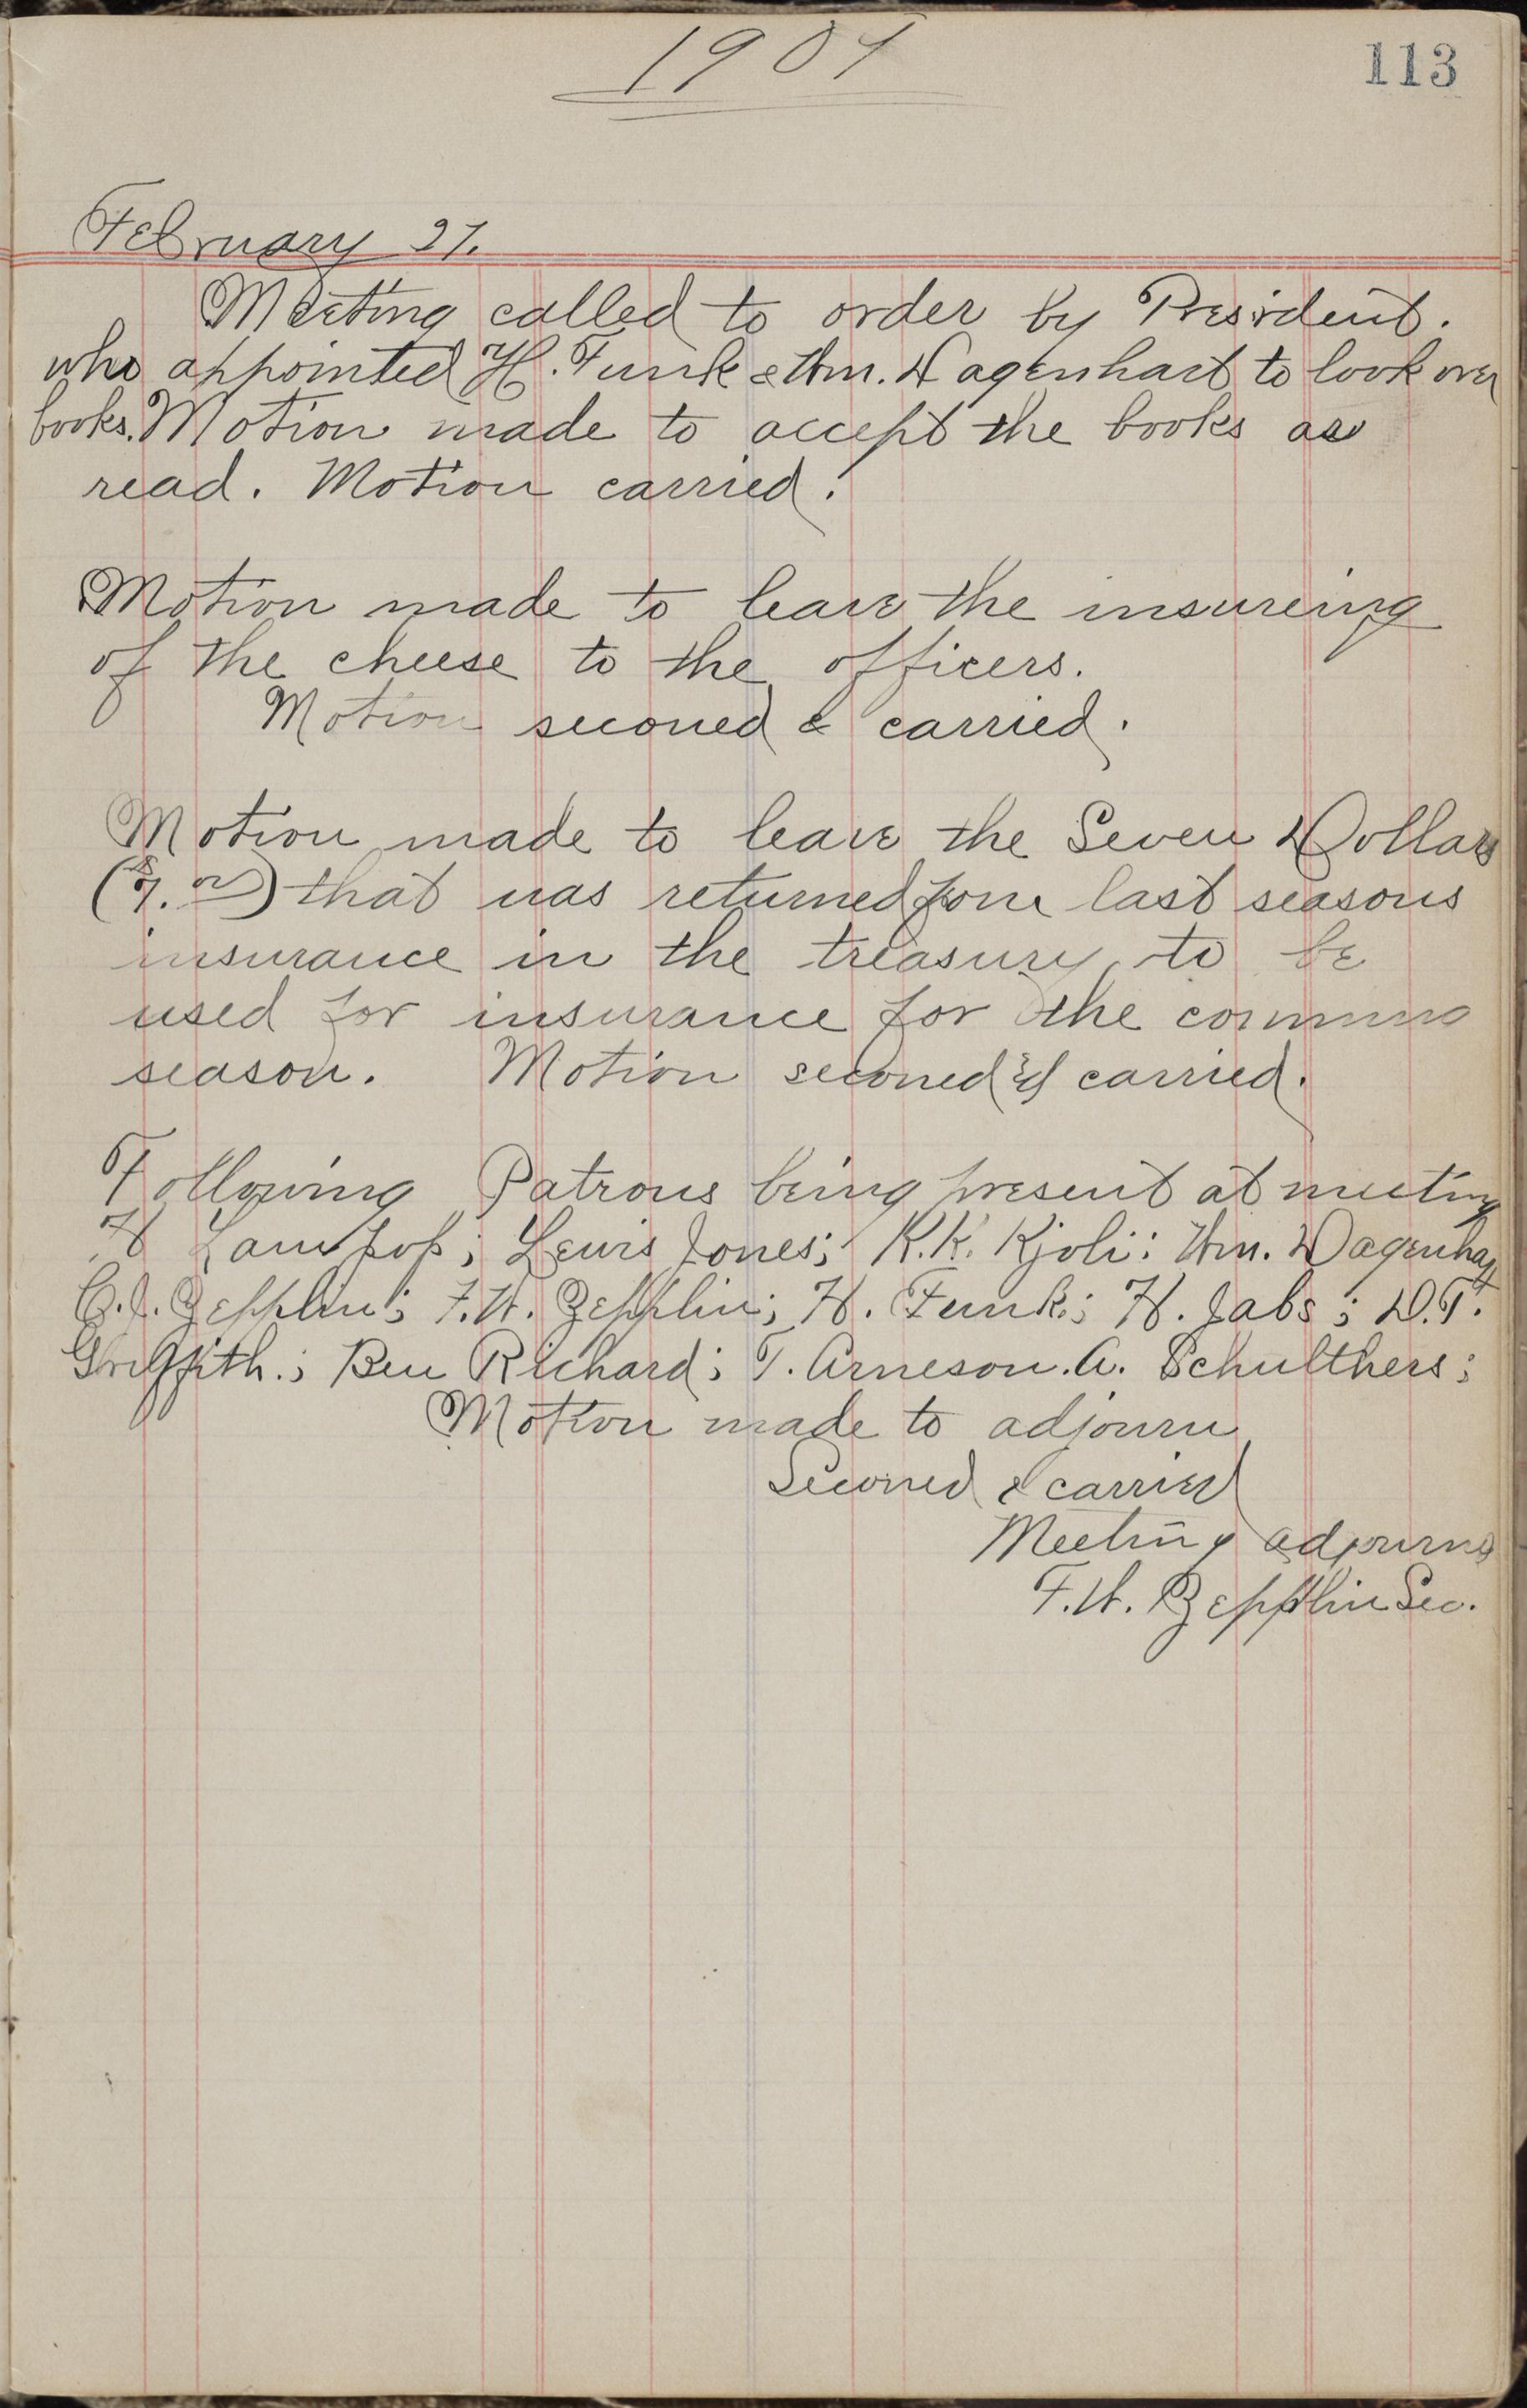 1904
113
February 27.
Meeting called to order by President.
who appointed H. Funk & Wm. Dagenhart to look over
books. Motion made to accept the books as
read. Motion carried.
Motion made to leave the insureing
of the cheese to the officers.
Motion seconed & carried.
Motion made to leave the Seven Dollars
($7.00) that was returned from last seasons
insurance in the treasury to be
used for insurance for the comming
season. Motion seconed & carried.
Following Patrons being present at meeting
H Lamphop; Lewis Jones; K.K. Kjoli: Wm. Dagenhart
C.J. Zepplin; F.W. Zepplin; H. Funk; H. Jabs; D.T.
Griffith.; Ben Richard; T. Arneson. A. Schulthers;
Motion made to adjourn
Seconed & carried
Meeting adjourned
F.W. Zepplin Sec.